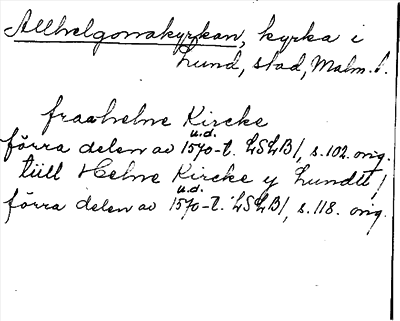 Allhelgonakyrkan, kyrka i
Lund, stad, Malm. l.
fraalhelne Kircke
u.d.
förra delen av 1570-t. LSLB1, s.102. orig.
tiill Helne Kircke y Lundtt /
u.d.
förra delen av 1570-t. LSLB1, s.118. orig.